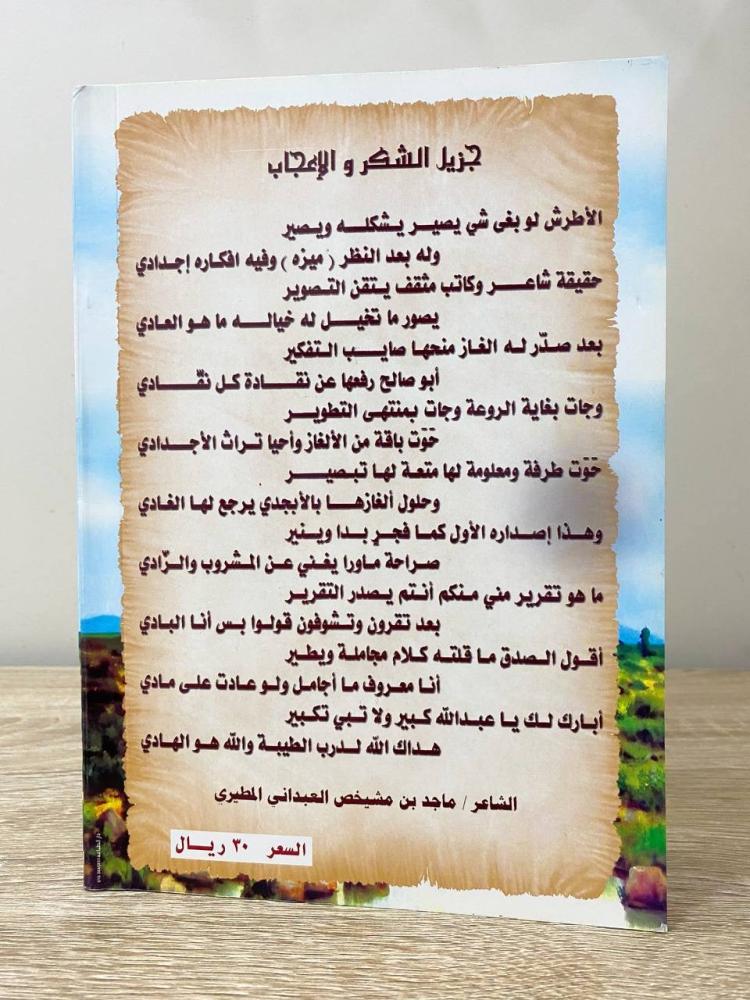 جزيل الشكر و الإعجاب
الأطرش لو بغى شي يصيــر يشكلــــه ويصير
وله بعد النظر ( ميزه ) وفيه افكاره إجدادي
حقيقة شاعــــر وكاتب مثقف يـتقن التصوير
يصور ما تخيـــل له خيالـــه ما هو العادي
بعد صدّر لــه الغاز منحهـا صايـــب الـتفكير
أبو صالح رفعها عن نقــــادة كـل نقّـــــادي
وجات بغاية الروعة وجات بمنتهى التطويــر
حَوَت باقة من الألغاز وأحيا تـراث الأجــدادي
حَوَت طرفة ومعلومة لها متعة لـها تبصيــر
وحلول ألغازهــــا بالأبجدي يرجع لـها الغادي
وهــذا إصـداره الأول كمـا فجـرٍ بـدا وينير
صـراحة مـاورا يغـني عـن المشروب والـزّادي
ما هو تقرير مني منكم أنـتم يـصدر التقريـر
بعد تقرون وتـشوفون قولـوا بـس أنـا البـادي
أقـول الـصدق مـا قلتـه كـلام مجاملة ويطـير
أنـا معـروف مـا أجامـل ولـو عـادت علـى مـادي
أبـارك لـك يـا عبـدالله كـبير ولا تـبي تكـبير
هـداك الله لـدرب الطيبـة والله هـو الهـادي
الشاعر / ماجد بن مشيخص العبداني المطيري
السعر ٣٠ ريـال